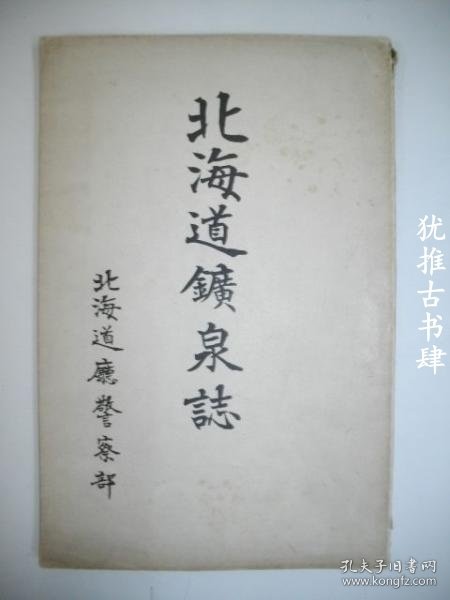 北海道鑛泉誌
北海道廳警察部
犹推古书肆
孔夫子旧书网
www.kongfz.com